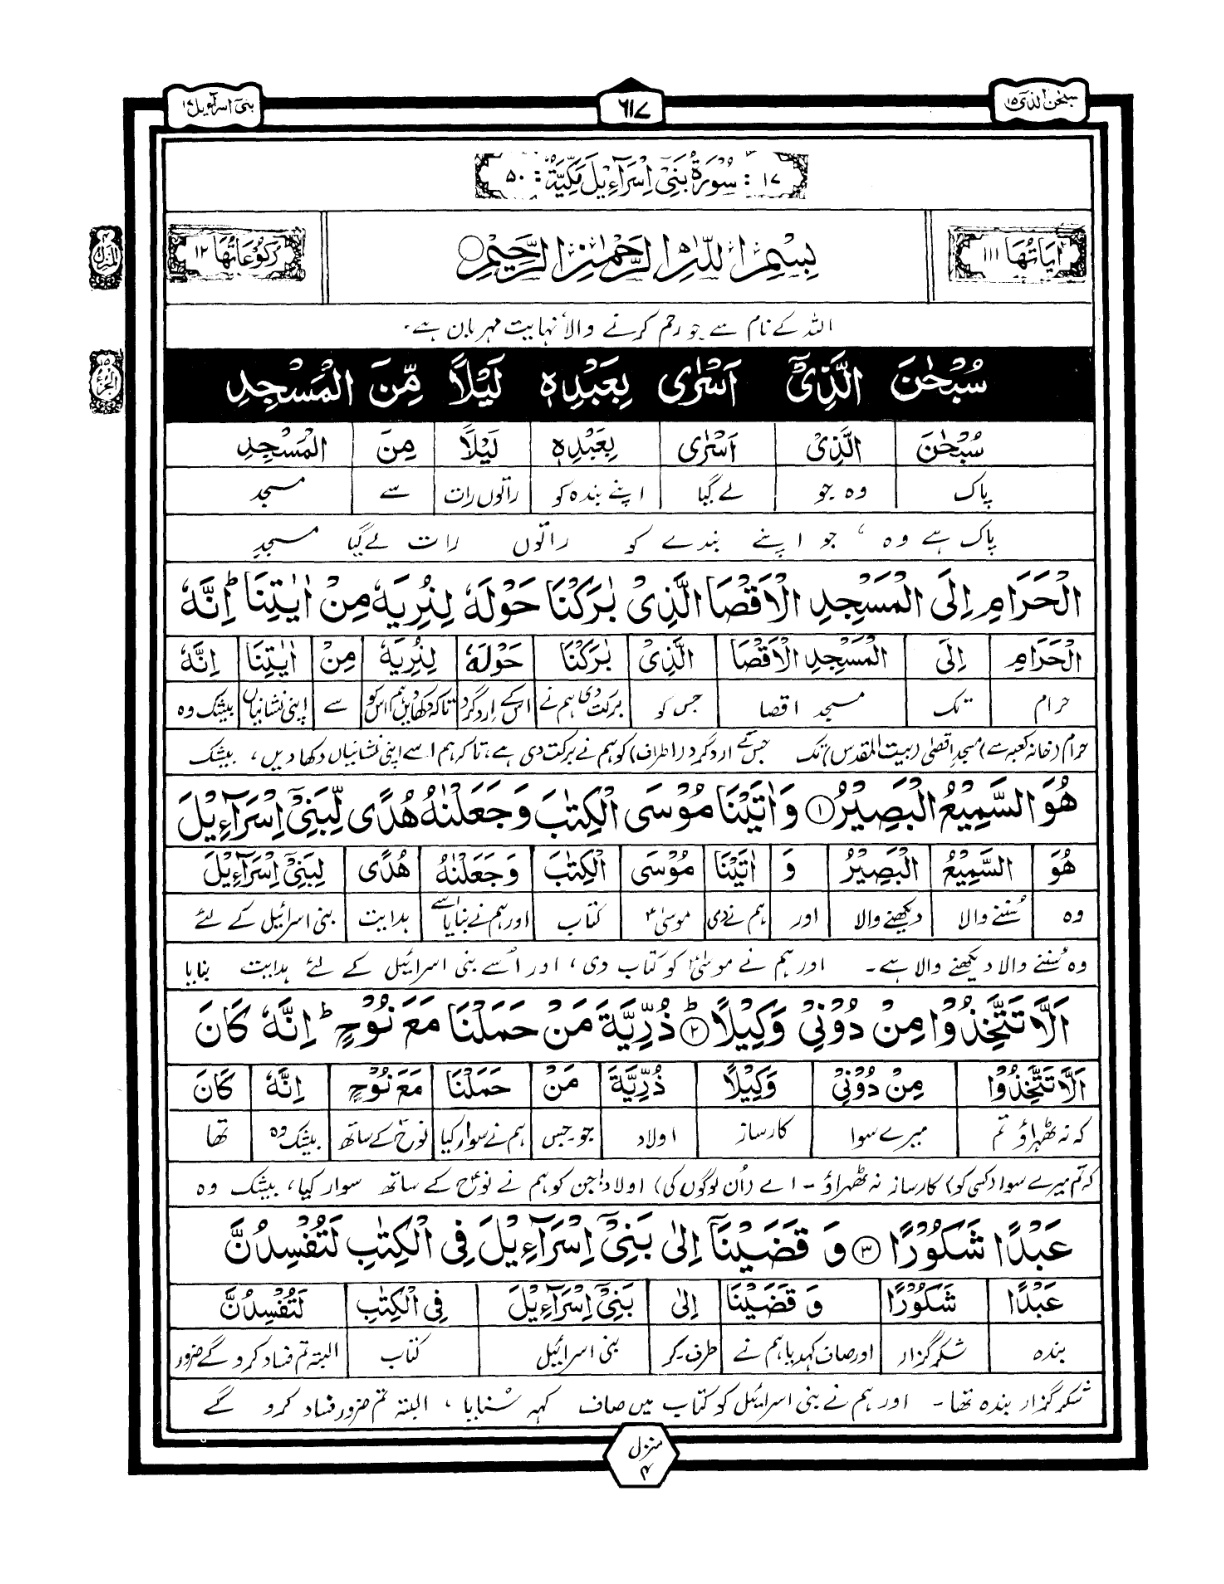 سبحن الذی ۱۵
٦١٧
بنی اسرآءیل ۱۷
۱۷ : سُوْرَةُ بَنِیْۤ اِسْرَآءِیْلَ مَكِّیَّةٌ : ۵۰
اٰیَاتُهَا ۱۱۱
بِسْمِ اللّٰهِ الرَّحْمٰنِ الرَّحِیْمِ
رُكُوْعَاتُهَا ۱۲
اللہ کے نام سے جو رحم کرنے والا نہایت مہربان ہے۔
سُبْحٰنَ الَّذِیْۤ اَسْرٰی بِعَبْدِهٖ لَیْلًا مِّنَ الْمَسْجِدِ
سُبْحٰنَ الَّذِیْ اَسْرٰی بِعَبْدِهٖ لَیْلًا مِنَ الْمَسْجِدِ
پاک وہ جو لے گیا اپنے بندہ کو راتوں رات سے مسجد
پاک ہے وہ ، جو اپنے بندے کو راتوں رات لے گیا مسجدِ
الْحَرَامِ اِلَی الْمَسْجِدِ الْاَقْصَا الَّذِیْ بٰرَكْنَا حَوْلَهٗ لِنُرِیَهٗ مِنْ اٰیٰتِنَا ؕ اِنَّهٗ
الْحَرَامِ اِلَی الْمَسْجِدِ الْاَقْصَا الَّذِیْ بٰرَكْنَا حَوْلَهٗ لِنُرِیَهٗ مِنْ اٰیٰتِنَا اِنَّهٗ
حرام تک مسجد اقصا جس کو برکت دی ہم نے اس کے ارد گرد تاکہ دکھا دیں ہم اس کو سے اپنی نشانیاں بیشک وہ
حرام (خانہ کعبہ سے) مسجد اقصٰی (بیت المقدس) تک جس کے ارد گرد (اطراف) کو ہم نے برکت دی ہے، تاکہ ہم اسے اپنی نشانیاں دکھا دیں، بیشک
هُوَ السَّمِیْعُ الْبَصِیْرُ ۱ وَ اٰتَیْنَا مُوْسَی الْكِتٰبَ وَ جَعَلْنٰهُ هُدًی لِّبَنِیْۤ اِسْرَآءِیْلَ
هُوَ السَّمِیْعُ الْبَصِیْرُ وَ اٰتَیْنَا مُوْسَی الْكِتٰبَ وَ جَعَلْنٰهُ هُدًی لِبَنِیْۤ اِسْرَآءِیْلَ
وہ سُننے والا دیکھنے والا اور ہم نے دی موسیٰؑ کتاب اور ہم نے بنایا اسے ہدایت بنی اسرائیل کے لئے
وہ سُننے والا دیکھنے والا ہے۔ اور ہم نے موسیٰؑ کو کتاب دی، اور اُسے بنی اسرائیل کے لئے ہدایت بنایا
اَلَّا تَتَّخِذُوْا مِنْ دُوْنِیْ وَكِیْلًا ؕ ۲ ذُرِّیَّةَ مَنْ حَمَلْنَا مَعَ نُوْحٍ ؕ اِنَّهٗ كَانَ
اَلَّا تَتَّخِذُوْا مِنْ دُوْنِیْ وَكِیْلًا ذُرِّیَّةَ مَنْ حَمَلْنَا مَعَ نُوْحٍ اِنَّهٗ كَانَ
کہ نہ ٹھہراؤ تم میرے سوا کارساز اولاد جو۔جس ہم نے سوار کیا نوحؑ کے ساتھ بیشک وہ تھا
کہ تم میرے سوا (کسی کو) کارساز نہ ٹھہراؤ ۔ اے (اُن لوگوں کی) اولاد! جن کو ہم نے نوحؑ کے ساتھ سوار کیا، بیشک وہ
عَبْدًا شَكُوْرًا ۳ وَ قَضَیْنَاۤ اِلٰی بَنِیْۤ اِسْرَآءِیْلَ فِی الْكِتٰبِ لَتُفْسِدُنَّ
عَبْدًا شَكُوْرًا وَ قَضَیْنَا اِلٰی بَنِیْۤ اِسْرَآءِیْلَ فِی الْكِتٰبِ لَتُفْسِدُنَّ
بندہ شکر گزار اور صاف کہہ دیا ہم نے طرف۔کو بنی اسرائیل کتاب البتہ تم فساد کرو گے ضرور
شکر گزار بندہ تھا ۔ اور ہم نے بنی اسرائیل کو کتاب میں صاف کہہ سُنایا ، البتہ تم ضرور فساد کرو گے
منزل ۴